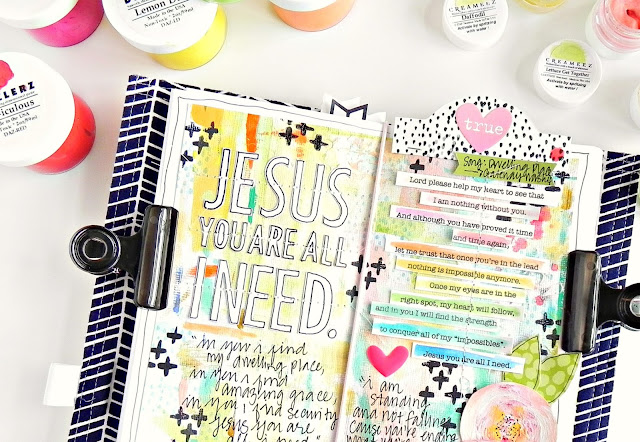 Lemon D
Made in the USA
Non-Toxic • 2oz/59ml
DAZ-ED
CREAMEEZ
Daffodil
Activate by spritzing
with water!
CREAMEEZ
Lettuce Get Together
Activate by spritzing
with water!
LERZ
iculous
Made in the USA
DAZ-RED
true
Song: Dwelling Place
Gateway Worship
JESUS
YOU ARE ALL
I NEED.
Lord please help my heart to see that
I am nothing without you.
And although you have proved it time
and time again,
let me trust that once you're in the lead
nothing is impossible anymore.
Once my eyes are in the
right spot, my heart will follow,
and in you I will find the strength
to conquer all of my "impossibles".
Jesus you are all I need.
"in you i find
my dwelling place,
in you i find
amazing grace,
in you i find security
Jesus you are
"i am
standing
and not falling
cause you're